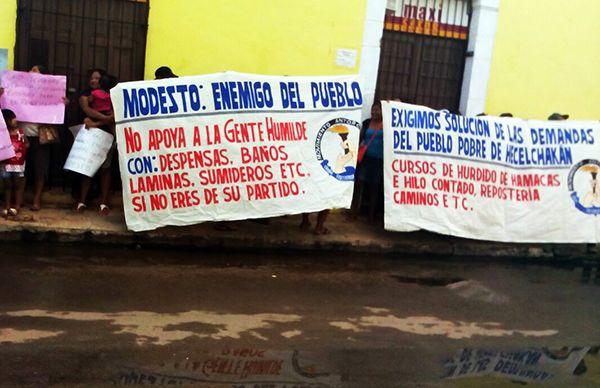 MODESTO: ENEMIGO DEL PUEBLO
NO APOYA A LA GENTE HUMILDE
CON: DESPENSAS, BAÑOS
LAMINAS, SUMIDEROS ETC.
SI NO ERES DE SU PARTIDO.
EXIGIMOS SOLUCION DE LAS DEMANDAS
DEL PUEBLO POBRE DE HECELCHAKÁN
CURSOS DE HURDIDO DE HAMACAS
E HILO CONTADO, REPOSTERIA
CAMINOS E TC.
maxi